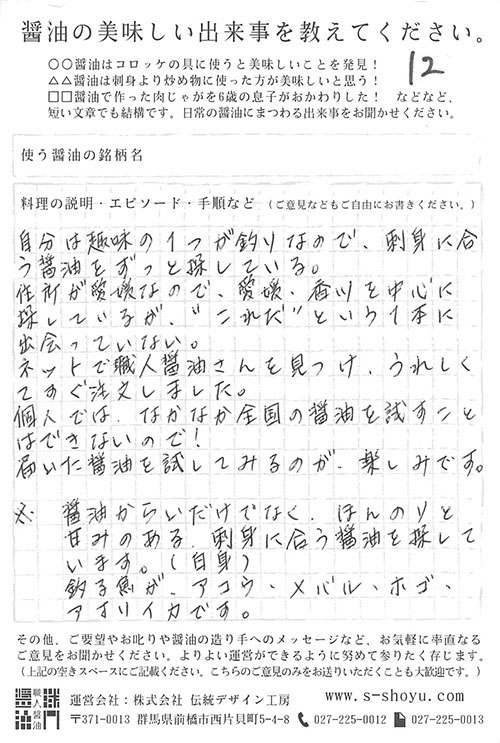 醤油の美味しい出来事を教えてください。
○○醤油はコロッケの具に使うと美味しいことを発見！
△△醤油は刺身より炒め物に使った方が美味しいと思う！
□□醤油で作った肉じゃがを6歳の息子がおかわりした！　などなど、
短い文章でも結構です。日常の醤油にまつわる出来事をお聞かせください。
12
使う醤油の銘柄名
料理の説明・エピソード・手順など（ご意見などもご自由にお書きください。）
自分は趣味の1つが釣りなので、刺身に合
う醤油をずっと探している。
住所が愛媛なので、愛媛、香川を中心に
探しているが、"これだ"という1本に
出会っていない。
ネットで職人醤油さんを見つけ、うれしく
てすぐ注文しました。
個人では、なかなか全国の醤油を試すこと
はできないので！
届いた醤油を試してみるのが、楽しみです。
※　醤油からいだけでなく、ほんのりと
甘みのある、刺身に合う醤油を探して
います。（白身）
釣る魚が、アコウ、メバル、ホゴ、
アオリイカです。
その他、ご要望やお叱りや醤油の造り手へのメッセージなど、お気軽に率直なる
ご意見をお聞かせください。よりよい運営ができるように努めて参りたく存じます。
（上記の空きスペースにご記載ください。こちらのご意見のみをお送りいただくことも大歓迎です。）
職人醤油
運営会社：株式会社 伝統デザイン工房　www.s-shoyu.com
〒371-0013 群馬県前橋市西片貝町5-4-8　027-225-0012　027-225-0013